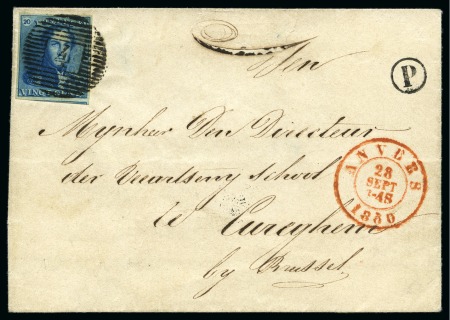 20
VINGT
P
Mynheer Den Directeur
der Veeartseny school
te Cureghem
by Brussel.
ANVERS
28
SEPT
1850